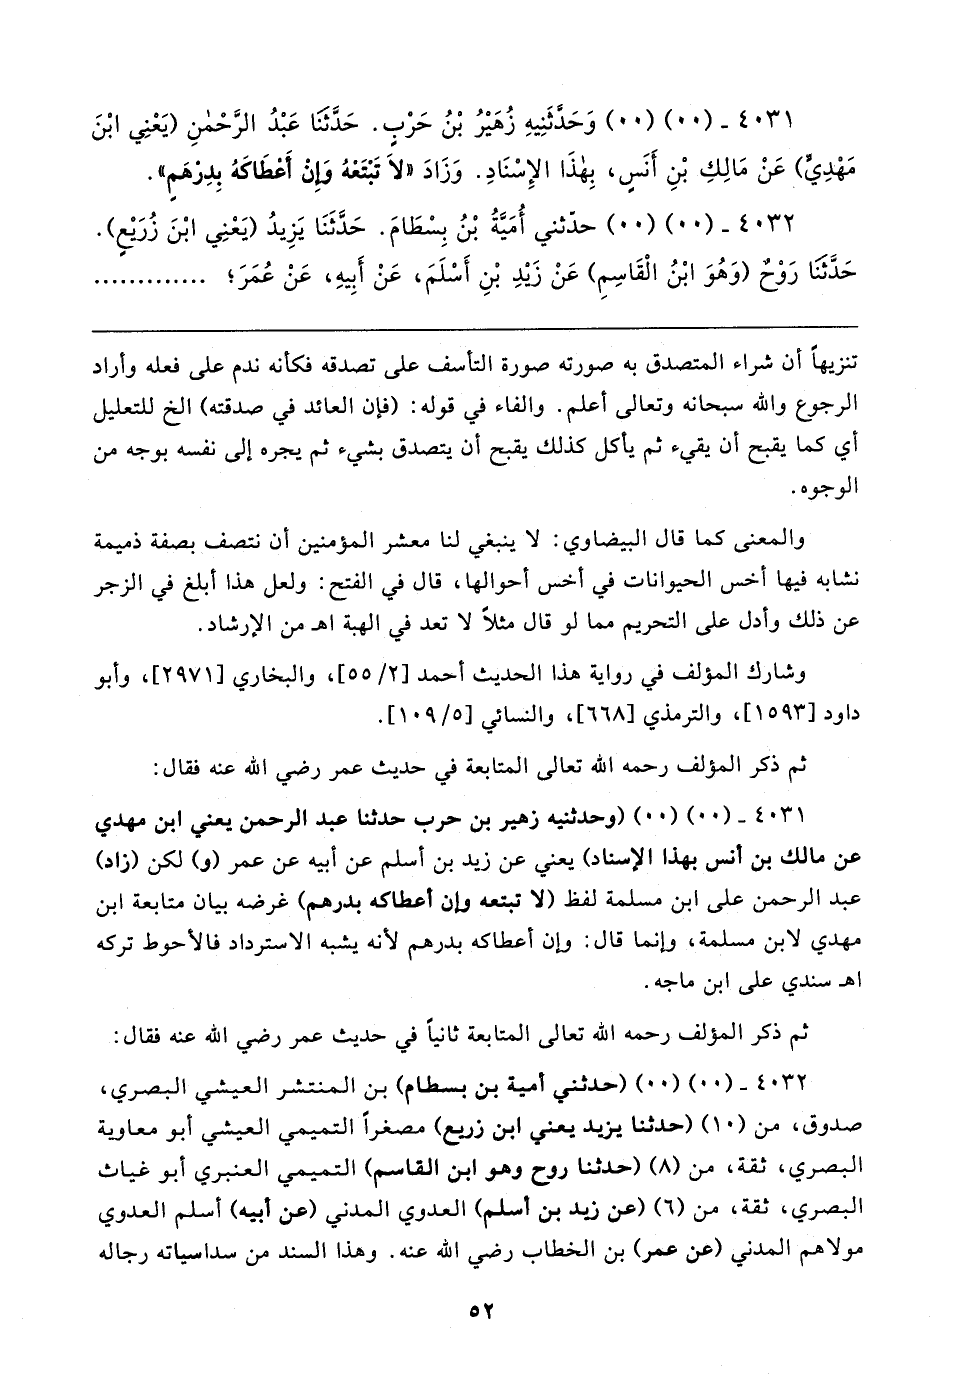 ٤٠٣١ ـ (٠٠) (٠٠) وَحَدَّثَنِيهِ زُهَيْرُ بْنُ حَرْبٍ. حَدَّثَنَا عَبْدُ الرَّحْمٰنِ (يَعْنِي ابْنَ
مَهْدِيٍّ) عَنْ مَالِكِ بْنِ أَنَسٍ، بِهٰذَا الإِسْنَادِ. وَزَادَ «لاَ تَبْتَعْهُ وَإِنْ أَعْطَاكَهُ بِدِرْهَمٍ».
٤٠٣٢ ـ (٠٠) (٠٠) حدّثني أُمَيَّةُ بْنُ بِسْطَامَ. حَدَّثَنَا يَزِيدُ (يَعْنِي ابْنَ زُرَيْعٍ).
حَدَّثَنَا رَوْحٌ (وَهُوَ ابْنُ الْقَاسِمِ) عَنْ زَيْدِ بْنِ أَسْلَمَ، عَنْ أَبِيهِ، عَنْ عُمَرَ؛ .............
تنزيهاً أن شراء المتصدق به صورته صورة التأسف على تصدقه فكأنه ندم على فعله وأراد
الرجوع والله سبحانه وتعالى أعلم. والفاء في قوله: (فإن العائد في صدقته) الخ للتعليل
أي كما يقبح أن يقيء ثم يأكل كذلك يقبح أن يتصدق بشيء ثم يجره إلى نفسه بوجه من
الوجوه.
والمعنى كما قال البيضاوي: لا ينبغي لنا معشر المؤمنين أن نتصف بصفة ذميمة
نشابه فيها أخس الحيوانات في أخس أحوالها، قال في الفتح: ولعل هذا أبلغ في الزجر
عن ذلك وأدل على التحريم مما لو قال مثلاً لا تعد في الهبة اهـ من الإرشاد.
وشارك المؤلف في رواية هذا الحديث أحمد [٢/ ٥٥]، والبخاري [٢٩٧١]، وأبو
داود [١٥٩٣]، والترمذي [٦٦٨]، والنسائي [٥/ ١٠٩].
ثم ذكر المؤلف رحمه الله تعالى المتابعة في حديث عمر رضي الله عنه فقال:
٤٠٣١ ـ (٠٠) (٠٠) (وحدثنيه زهير بن حرب حدثنا عبد الرحمن يعني ابن مهدي
عن مالك بن أنس بهذا الإسناد) يعني عن زيد بن أسلم عن أبيه عن عمر (و) لكن (زاد)
عبد الرحمن على ابن مسلمة لفظ (لا تبتعه وإن أعطاكه بدرهم) غرضه بيان متابعة ابن
مهدي لابن مسلمة، وإنما قال: وإن أعطاكه بدرهم لأنه يشبه الاسترداد فالأحوط تركه
اهـ سندي على ابن ماجه.
ثم ذكر المؤلف رحمه الله تعالى المتابعة ثانياً في حديث عمر رضي الله عنه فقال:
٤٠٣٢ ـ (٠٠) (٠٠) (حدثني أمية بن بسطام) بن المنتشر العيشي البصري،
صدوق، من (١٠) (حدثنا يزيد يعني ابن زريع) مصغراً التميمي العيشي أبو معاوية
البصري، ثقة، من (٨) (حدثنا روح وهو ابن القاسم) التميمي العنبري أبو غياث
البصري، ثقة، من (٦) (عن زيد بن أسلم) العدوي المدني (عن أبيه) أسلم العدوي
مولاهم المدني (عن عمر) بن الخطاب رضي الله عنه. وهذا السند من سداسياته رجاله
٥٢